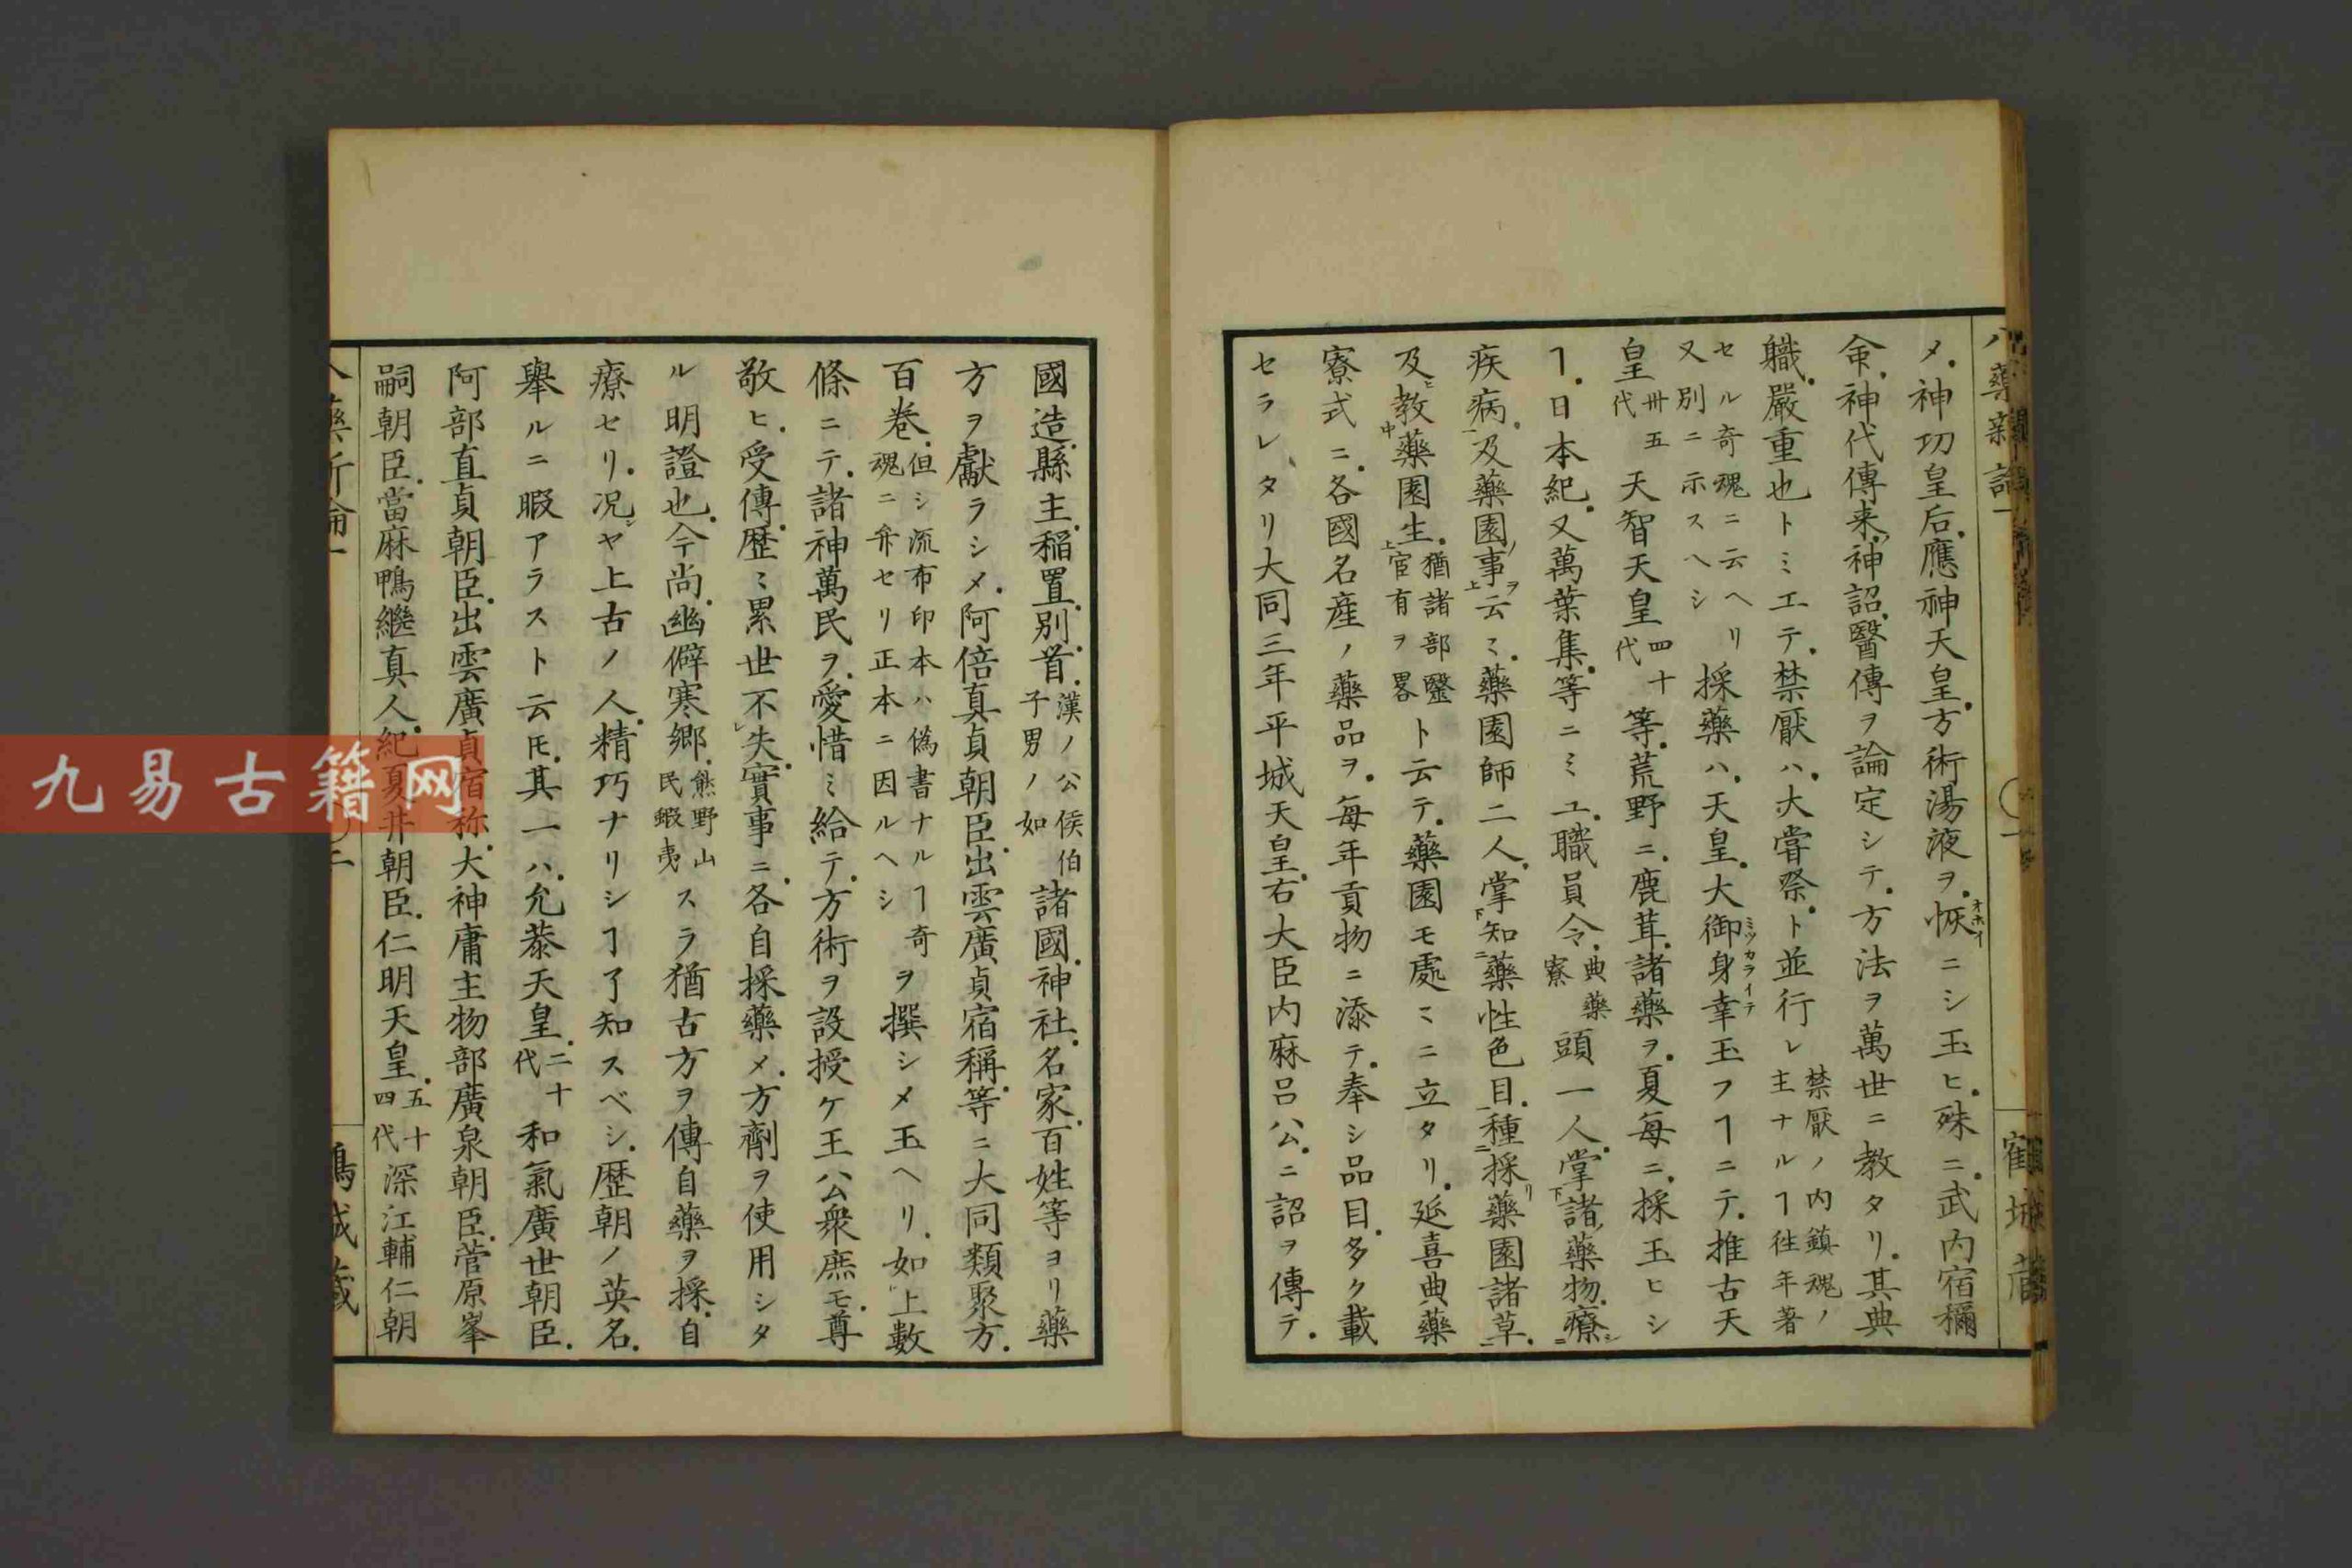 メ神切皇后應神天皇方術湯液ヲ恢オホイニシ玉ヒ殊ニ武内宿禰
命神代傳来神詔醫傳ヲ論定シテ方法ヲ萬世ニ教タリ其典
職嚴重也トミエテ禁厭ハ大甞祭ト並行レ禁厭ノ内鎮魂ノ主ナルヿ徃年著
セル奇魂ニ云ヘリ又別ニ示スヘシ採藥ハ天皇大御身幸ミツカライテ玉フヿニテ推古天
皇卅五代天智天皇四十代等荒野ニ鹿茸諸藥ヲ夏毎ニ採玉ヒシ
ヿ日本紀又萬葉集等ニミユ職員令典藥寮頭一人掌諸藥物療
疾病及藥園事云〻藥園師二人掌知藥性色目種採藥園諸草
及教藥園生猶諸部醫官有ヲ畧ト云テ藥園モ處〻ニ立タリ延喜典藥
寮式ニ各國名産ノ藥品ヲ毎年貢物ニ添テ奉シ品目多ク載
セラレタリ大同三年平城天皇右大臣内麻呂公ニ詔ヲ傳テ
國造縣主稲置別首漢ノ公侯伯子男ノ如諸國神社名家百姓等ヨリ藥
方ヲ獻ラシメ阿倍真貞朝臣出雲廣貞宿稱等ニ大同類聚方
百巻但シ流布印本ハ偽書ナルヿ奇魂ニ弁セリ正本ニ因ルヘシヲ撰シメ玉ヘリ如上數
條ニテ諸神萬民ヲ愛惜ミ給テ方術ヲ設授ケ王公衆庶モ尊
敬ヒ受傳歴〻累世不失實事ニ各自採藥メ方劑ヲ使用シタ
ル明證也今尚幽僻寒郷熊野山民蝦夷スラ猶古方ヲ傳自藥ヲ採自
療セリ况ヤ上古ノ人精巧ナリシヿ了知スベシ歴朝ノ英名
舉ルニ暇アラスト云𪜈其一ハ允恭天皇二十代和氣廣世朝臣
阿部直貞朝臣出雲廣貞宿称大神庸主物部廣泉朝臣菅原峯
嗣朝臣當麻鴨繼真人紀夏井朝臣仁明天皇五十四代深江輔仁朝
九易古籍网